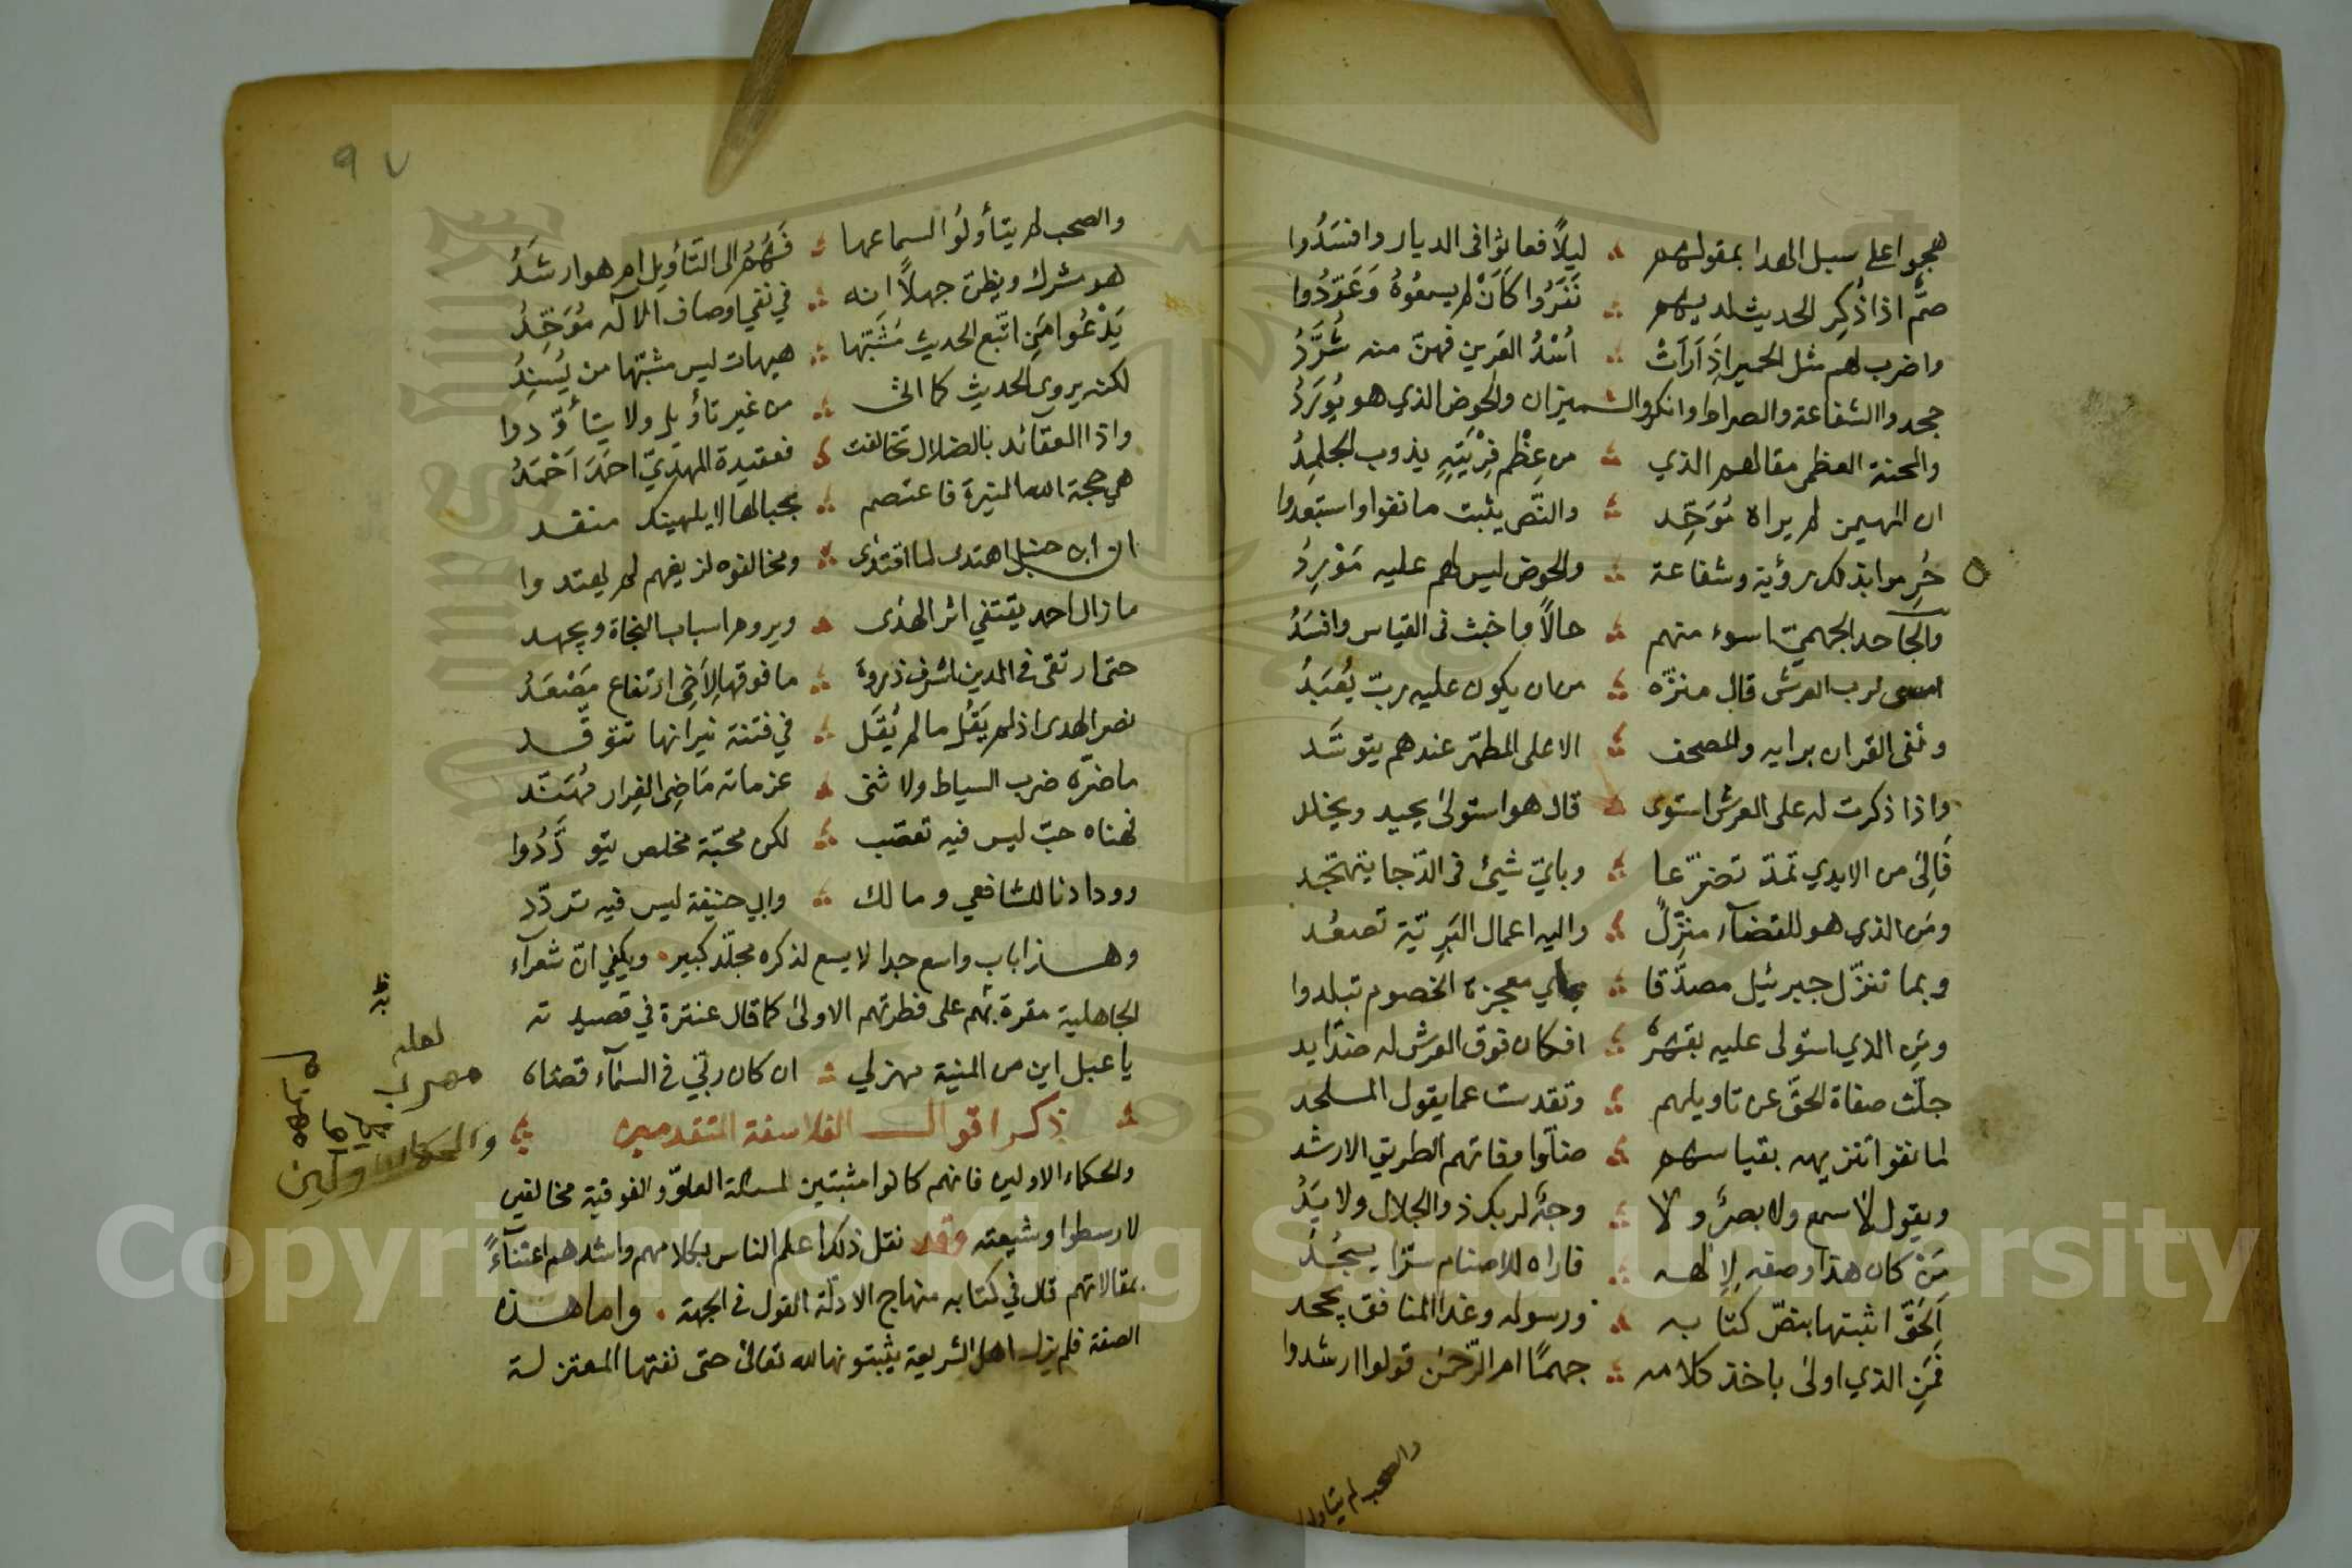 هجموا على سبل الهدا بمقولهم ليلًا فعاثوا فى الديار وافسَدُوا
صمٌّ اذا ذُكِر الحديث لديهم نَفَرُوا كَاَنْ لم يسمعُوهُ وَغَرَّدُوا
واضرب لهم مثل الحمير اِذَا رَاَتْ اُسْدُ العَرِين فهنّ منه شُرَّدُ
جحدوا الشفاعة والصراط وانكروا الـــميزان والحوض الذي هو يُورَدُ
والمحنة العظمى مقالهم الذي من عِظْمِ فِرْيَتِهِ يذوب الجلمدُ
ان المهيمن لم يراه مُوَحِّد والنّص يثبت ما نفوا واستبعدوا
حُرِموا بذلك رؤية وشفاعة والحوض ليس لهم عليه مَوْرِدُ
والجاحد الجهميّ اسوء منهم حالًا واخبث فى القياس وافسَدُ
امسى لرب العرش قال منزّه من ان يكون عليه ربّ يُعْبَدُ
ونَفى القران برايه والمصحف الاعلى المطهّر عندهم يتوسَّد
واذا ذكرت له على العرش استوى قال هو استولى يحيد ويخلد
فَالِى من الايدي تمدّ تضرّعا وبايّ شيئ فى الدّجا يتهجّد
ومَن الذي هو للقضآء منزِّلٌ واليه اعمال البَرِيّة تصعُد
وبما تنزّل جبرئيل مصدّقا باي معجزة الخصوم تبلدوا
ومَنِ الذي استولى عليه بقهرهِ افكان فوق العرش له ضدّايد
جلّت صفاة الحقّ عن تاويلهم وتقدست عما يقول المـــلحد
لما نفوا تنزيهه بقياسهم ضلّوا وفاتهم الطريق الارشد
ويقول لا سمع ولا بصرٌ ولا وجهٌ لربك ذو الجلال ولا يَدُ
مَنْ كان هذا وصفه لالهه فاراه للاصنام سرّا يسجُدُ
اَلحَقّ اثبتها بنصّ كتابه ورسوله وغدا المنافق يجحد
فَمَنِ الذي اولى باخذ كلامه جهمًا ام الرّحمٰن قولوا ارشدوا
والصحب لم يتاولوا
٩٧
والصحب لم يتأولُوا لسماعها فَهُمُ الى التّأويل ام هو ارشَدُ
هو مشرك ويظن جهلًا انه في نفي اوصاف الآله مُوَحِّدُ
يَدْعُوا مَنِ اتّبع الحديث مُشَبّها هيهات ليس مشبّها من يُسنِدُ
لكنه يروي الحديث كما اتى من غير تأويل ولا يتأوّدوا
واذا العقائد بالضلال تخالفت فعقيدة المهديّ احمَدَ اَحْمَدُ
هي حجة الله المنيرة فاعتصم بحبالها لا يلهينك مفسد
ان ابن حنبل اهتدى لما اقتدى ومخالفوه لزيغهم لم يهتدوا
ما زال احمد يقتفي اثر الهدى ويروم اسباب النجاة ويجهد
حتى ارتقى فى الدين اشرف ذروة ما فوقها لِاَخِى ارتفاع مَصْعَدُ
نصر الهدى اذ لم يَقُل ما لم يُقَل في فتنة نيرانها تتوقّد
ما ضرّه ضرب السياط ولا ثنى عزماته مَاضِى الغِرار مُهَنّد
فهناه حبّ ليس فيه تعصّب لكن محبّة مخلص يتودَّدُوا
وودادنا للشافعي ومالك وابي حنيفة ليس فيه تردّد
وهـــذا باب واسع جدا لا يسع لذكره مجلّد كبير ويكفي انّ شعرآء
الجاهلية مقرة به على فطرتهم الاولى كما قال عنترة في قصيدته
يا عبل اين من المنية مهربي ان كان ربّي في السمآء قضاه
ذكر اقوال الفلاسفة المتقدمين
والحكماء الاولين فانهم كانوا مثبتين لمسالة العلوّ والفوقية مخالفين
لارسطوا وشيعته وقد نقل ذلك اعلم الناس بكلامهم واشدهم اعتنآءً
بمقالاتهم قال في كتابه منهاج الادلة القول فى الجهة . واما هـــذه
الصفة فلم يزل اهل الشريعة يثبتونها لله تعالى حتى نفتها المعتزلة
لعله
مهرب
والحكماء الاولين
Copyright © King Saud University